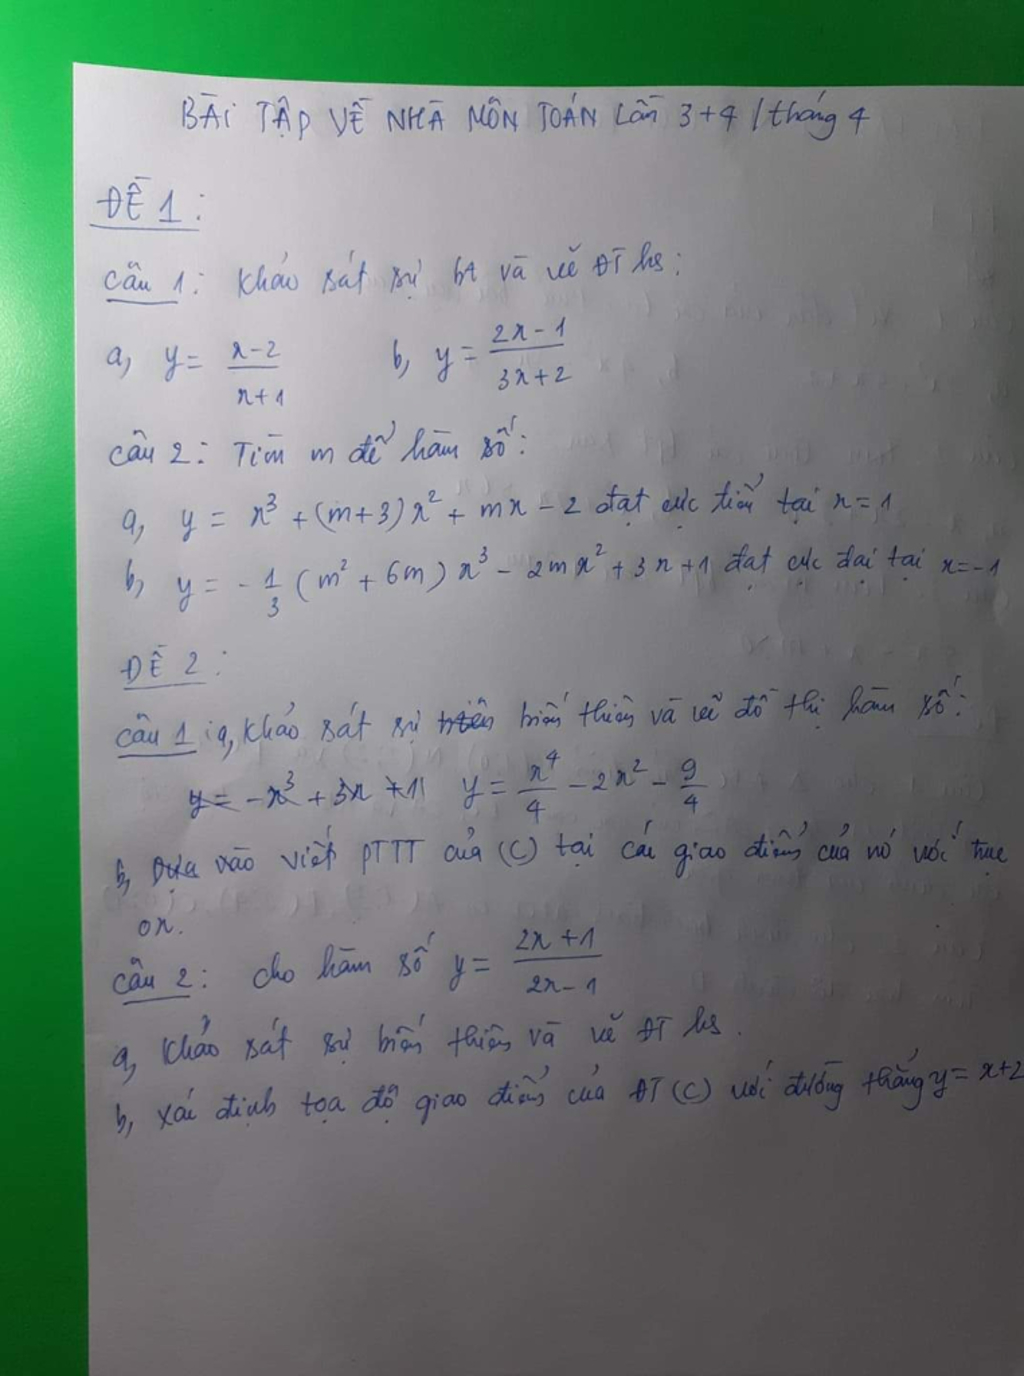 BÀI TẬP VỀ NHÀ MÔN TOÁN Lần 3+4 / tháng 4
ĐỀ 1:
Câu 1: Khảo sát sự bt và vẽ ĐT hs:
a, y = (x-2)/(x+1)  b, y = (2x-1)/(3x+2)
Câu 2: Tìm m để hàm số:
a, y = x³ + (m+3)x² + mx - 2 đạt cực tiểu tại x = 1
b, y = -1/3 (m² + 6m) x³ - 2mx² + 3x + 1 đạt cực đại tại x = -1
ĐỀ 2:
Câu 1: a, Khảo sát sự biến thiên và vẽ đồ thị hàm số:
y = -x³ + 3x + 1  y = x⁴/4 - 2x² - 9/4
b, Dựa vào viết PTTT của (C) tại các giao điểm của nó với trục
ox.
Câu 2: cho hàm số y = (2x+1)/(2x-1)
a, Khảo sát sự biến thiên và vẽ ĐT hs.
b, Xác định tọa độ giao điểm của ĐT (C) với đường thẳng y = x+2